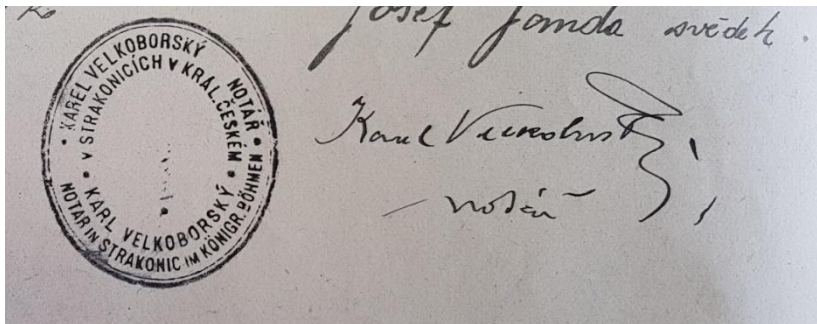 Josef Janda svědek.
KAREL VELKOBORSKÝ NOTÁŘ
V STRAKONICÍCH V KRÁL. ČESKÉM
KARL VELKOBORSKÝ
NOTAR IN STRAKONIC IM KÖNIGR. BÖHMEN
Karel Velkoborský,
notář